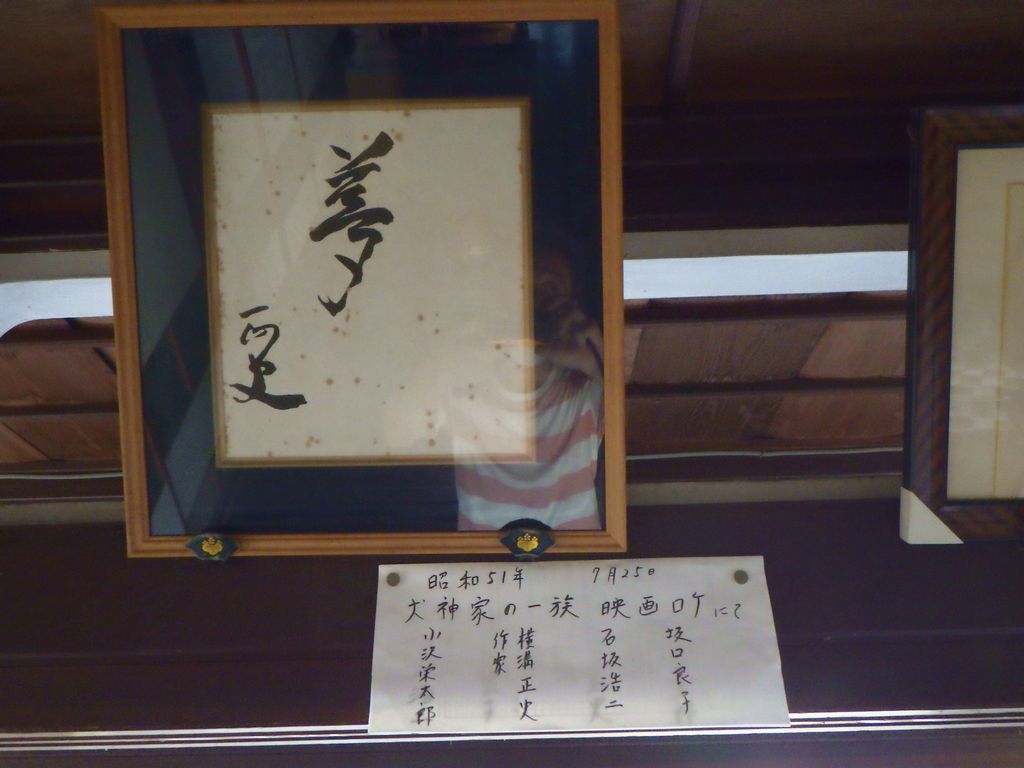 夢
正史
昭和51年 7月25日
犬神家の一族 映画ロケにて
坂口良子
石坂浩二
横溝正史
作家
小沢栄太郎